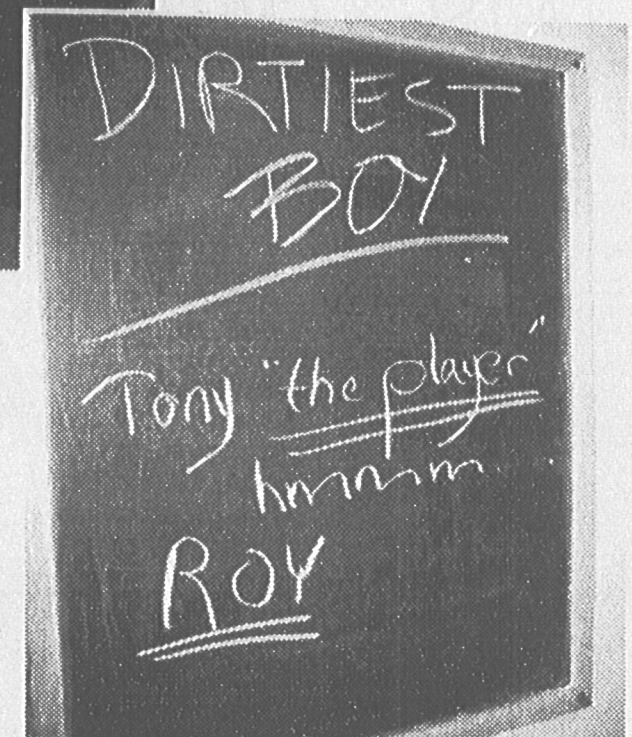 DIRTIEST
BOY
Tony "the player"
hmmmm..
ROY